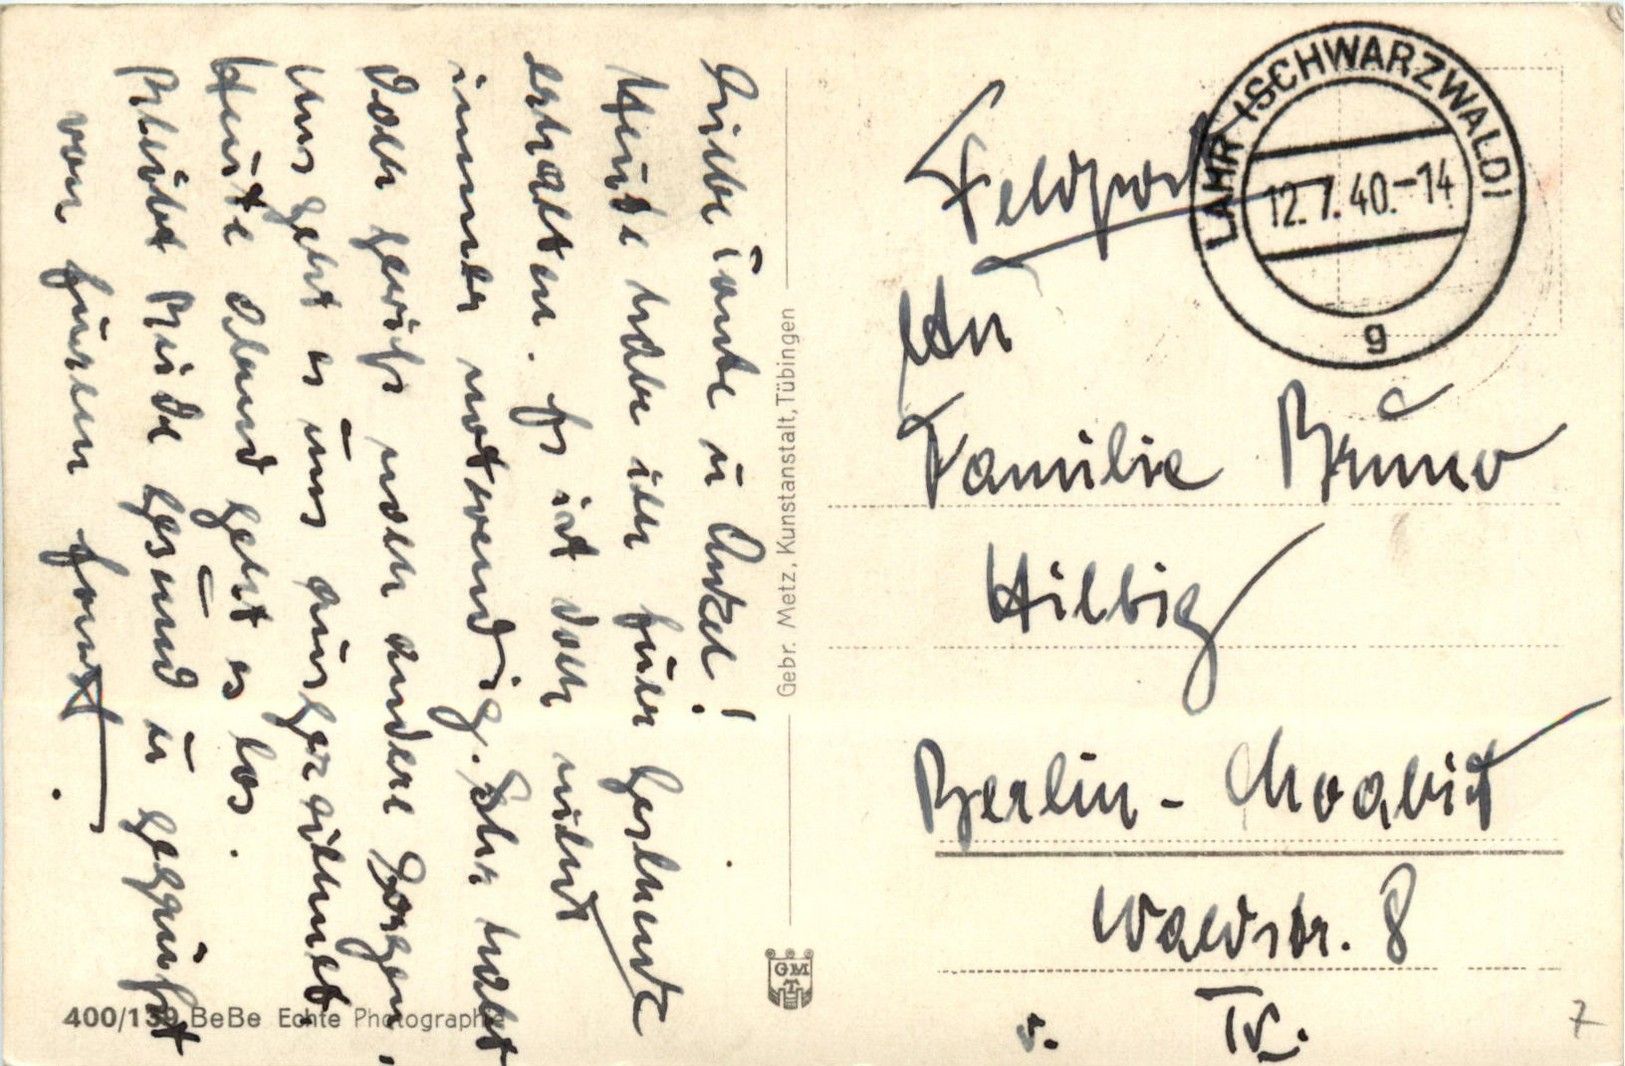 Liebe Tante u Onkel!
Heute habe ich Euer Geschenk
erhalten. Es ist doch nicht
immer notwendig. Ihr habt
doch gewiß noch andere Sorgen.
Uns geht es uns ausgezeichnet.
Heute abend geht es los.
Bleibt Beide gesund u gegrüßt
von Eurem Horst.
Gebr. Metz, Kunstanstalt, Tübingen
GMT
400/139 BeBe Echte Photographie
LAHR (SCHWARZWALD)
12.7.40.-14
g
Feldpost
An
Familie Bruno
Hilbig
Berlin - Moabit
Waldstr. 8
v. IV.
7